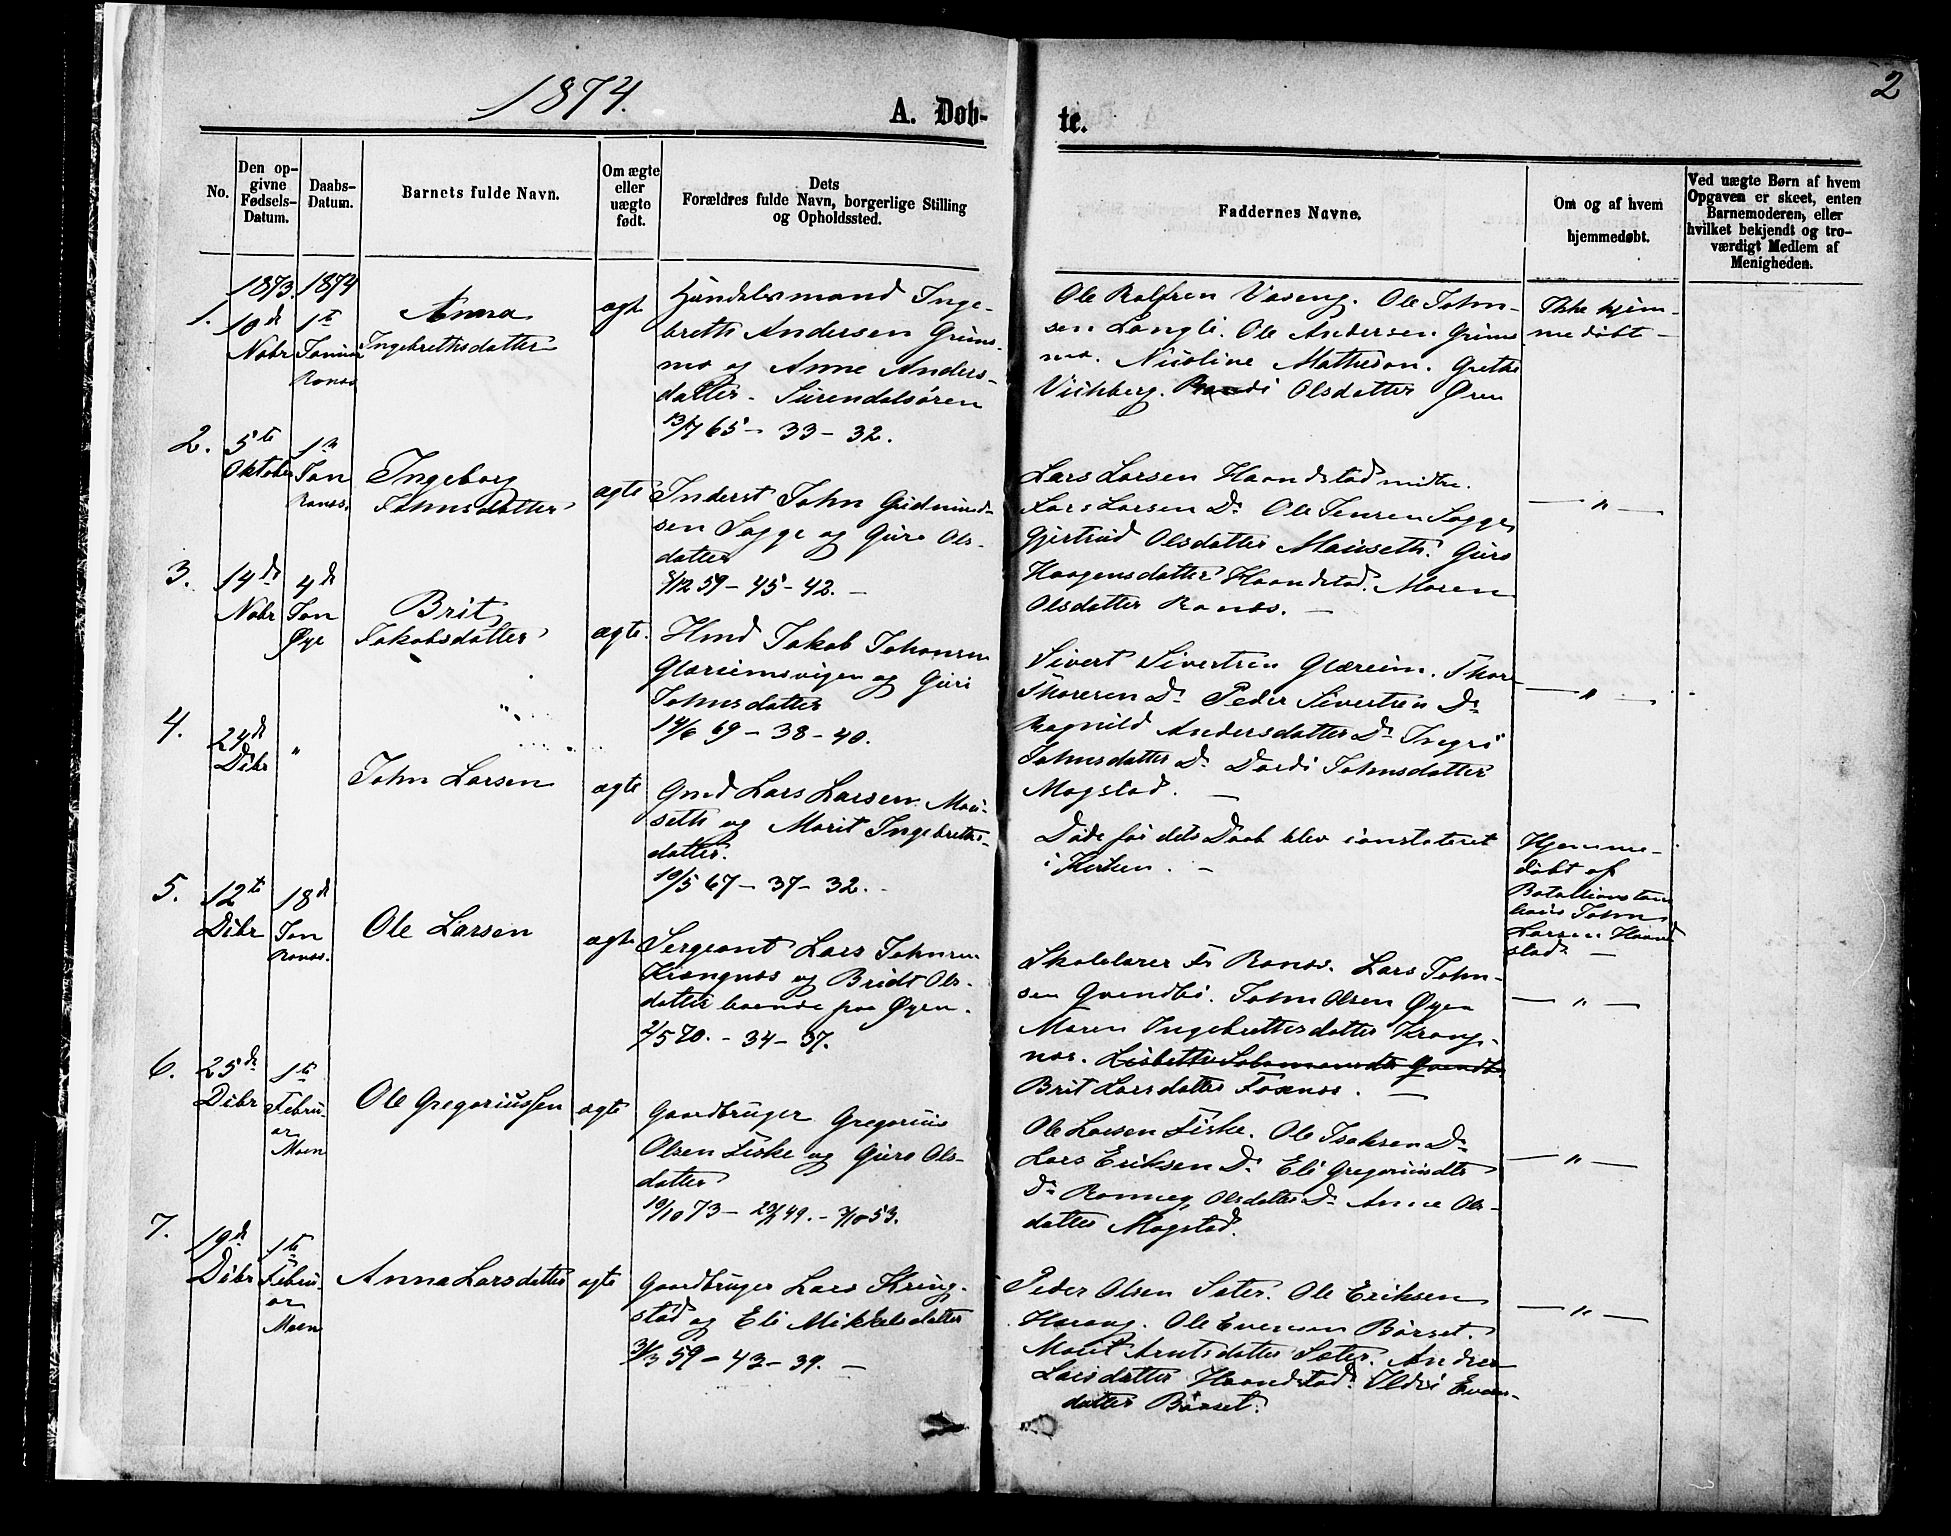 1874.
2
A. Døb-
te.
No.
Den op-
givne
Fødsels-
Datum.
Daabs-
Datum.
Barnets fulde Navn.
Om ægte
eller
uægte
født.
Dets
Forældres fulde Navn, borgerlige Stilling
og Opholdssted.
Faddernes Navne.
Om og af hvem
hjemmedøbt.
Ved uægte Børn af hvem
Opgaven er skeet, enten
Barnemoderen, eller
hvilket bekjendt og tro-
værdigt Medlem af
Menigheden.
1873. 1874
1.
10de
Nobr
1te
Januar
Ranæs
Anna
Ingebrethsdatter
ægte
Handelsmand Inge-
breth Andersen Grims-
mo og Anne Anders-
datter. Surendalsøren
13/7 65 - 33 - 32.
Ole Rolfsen Vaseng. Ole John-
sen Langli. Ole Andersen Grims
mo. Nicoline Matheson. Grethe
Olsdatter Øren
Ikke hjem-
medøbt -
2.
5te
Oktober
1ste
Jan
Ranæs.
Ingeborg
Johnsdatter
ægte
Inderst John Gudmund-
sen Sogge og Guro Ols-
datter
12 59 - 45 - 42. -
Lars Larsen Haandstad midtre.
Lars Larsen Do Ole Jensen Sogge,
Gjertrud Olsdatter Mauseth. Guro
Haagensdatter Haandstad. Maren
Olsdatter Ranæs. -
- " -
3.
14de
Nobr
4de
Jan
Øye
Brit
Jakobsdatter
ægte.
Hmd Jakob Johansen
Glæreimsvigen og Guri
Johnsdatter
14/6 69 - 38 - 40.
Sivert Sivertsen Glæreim. Thore
Thoresen Do Peder Sivertsen Do
Ragnild Andersdatter Do Ingri
Johnsdatter Do Dordi Johnsdatter
Mogstad. -
- " -
4.
24de
Dcbr
"
John Larsen
ægte
Gmd Lars Larsen Mau-
seth og Marit Ingebreths-
datter.
10/5 67 - 37 - 32. -
Døde før dets Daab blev constateret
i Kirken. -
Hjemme-
døbt af
Batallionstam
John
Larsen Haand
stad. -
5.
12te
Dcbr
18de
Jan
Ranæs.
Ole Larsen
ægte
Sergeant Lars Johnsen
Krangnæs og Bridt Ols-
datter boende paa Øyen.
2/5 70. - 34 - 37.
Skolelærer Fr Ranæs. Lars John-
sen Qvendbø. John Olsen Øyen
Maren Ingebrethsdatter Krang-
næs.
Brit Larsdatter Foxnæs. -
- " -
6.
25de
Dcbr
1te
Febru-
ar
Moen
Ole Gregoriussen
ægte
Gaardbruger Gregorius
Olsen Fiske og Guro Ols-
datter
10/10 73 - 49. - 53.
Ole Larsen Fiske. Ole Isaksen Do
Lars Eriksen Do Eli Gregoriusdtr
Do Ronnog Olsdatter Do Anne Ols-
datter Mogstad.
- " -
7.
19de
Dcbr
1te
Febru-
ar
Moen
Anna Larsdatter
ægte
Gaardbruger Lars Kring-
stad og Eli Mikkelsdatter
/3 59 - 43 - 39. -
Peder Olsen Sæter. Ole Eriksen
Harang. Ole Evensen Børset.
Marit Arntsdatter Sæter. Andrea
Larsdatter Haandstad. Even-
datter Børset.
- " -